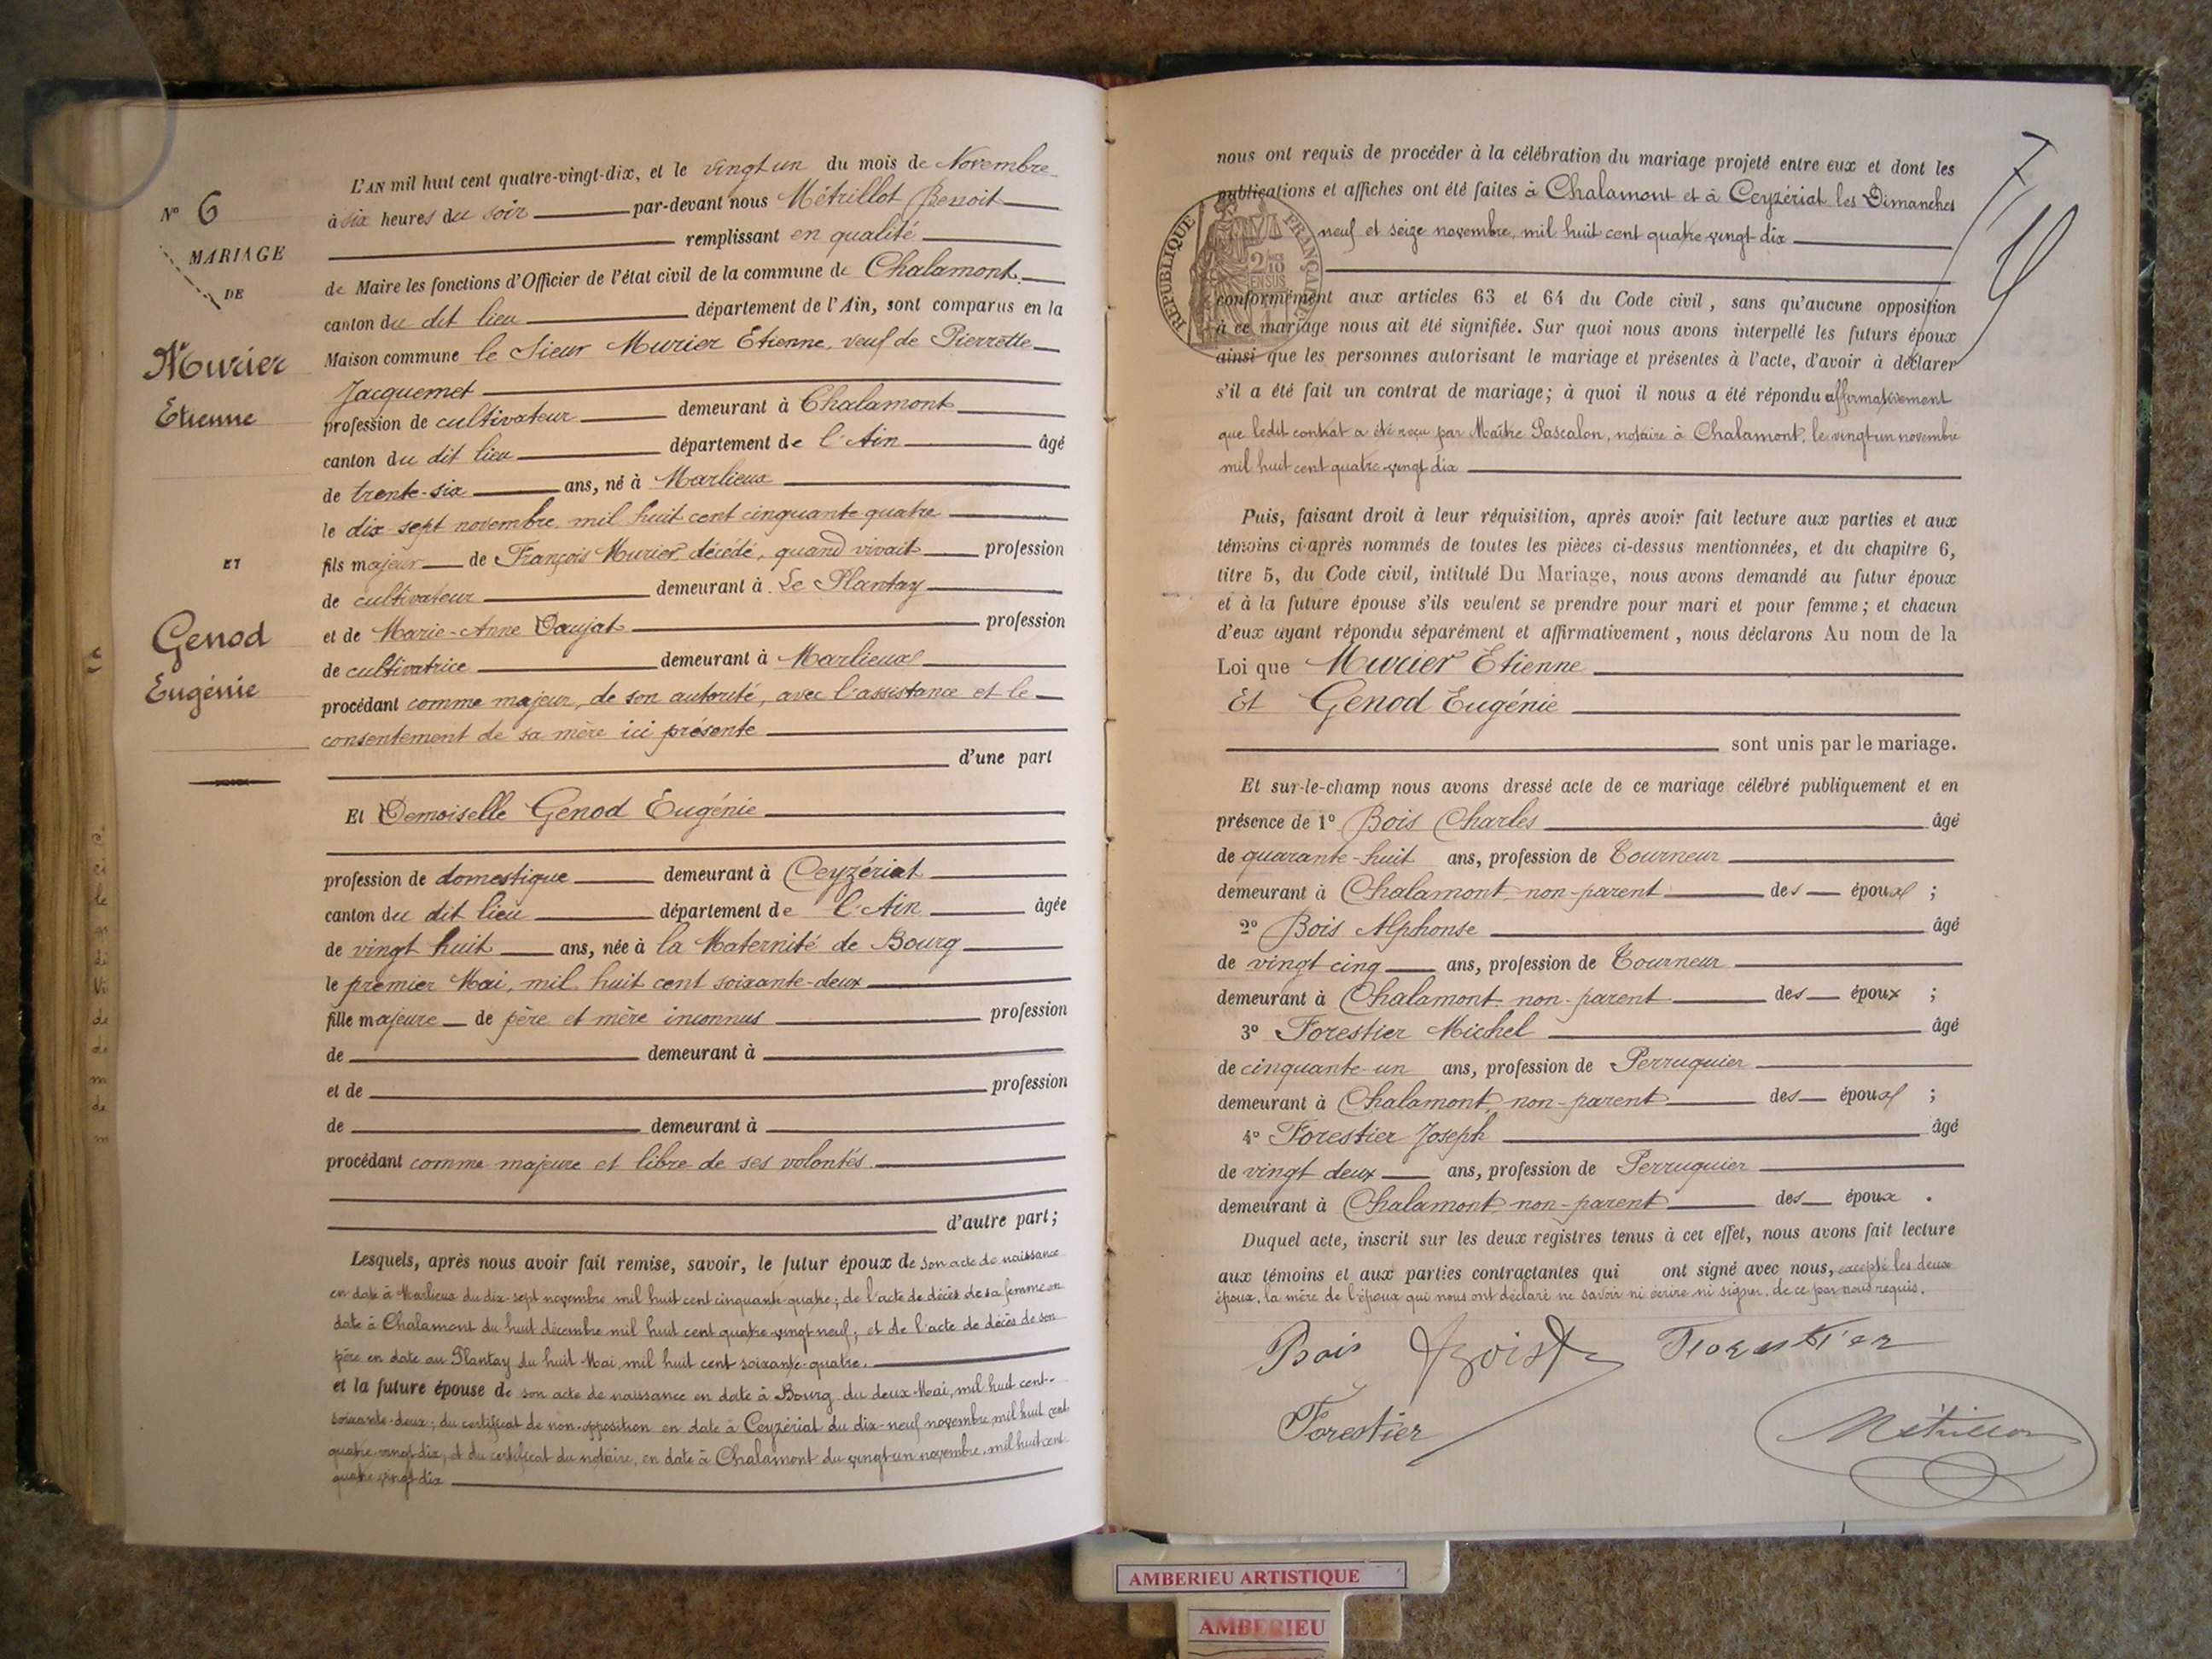 N° 6
MARIAGE
DE
Murier
Etienne
ET
Genod
Eugénie
L'AN mil huit cent quatre-vingt-dix, et le vingt un du mois de Novembre
à six heures du soir par-devant nous Métrillot Benoit
remplissant en qualité
de Maire les fonctions d'Officier de l'état civil de la commune de Chalamont
canton du dit lieu département de l'Ain, sont comparus en la
Maison commune le Sieur Murier Etienne, veuf de Pierrette
Jacquemet
profession de cultivateur demeurant à Chalamont
canton du dit lieu département de l'Ain âgé
de trente-six ans, né à Marlieux
le dix-sept novembre mil huit cent cinquante quatre
fils majeur de François Murier, décédé, quand vivait profession
de cultivateur demeurant à Le Plantay
et de Marie-Anne Daujat profession
de cultivatrice demeurant à Marlieux
procédant comme majeur, de son autorité, avec l'assistance et le
consentement de sa mère ici présente
d'une part
Et Demoiselle Genod Eugénie
profession de domestique demeurant à Ceyzériat
canton du dit lieu département de l'Ain âgée
de vingt huit ans, née à la Maternité de Bourg
le premier Mai, mil huit cent soixante-deux
fille majeure de père et mère inconnus profession
de demeurant à
et de profession
de demeurant à
procédant comme majeure et libre de ses volontés.
d'autre part;
Lesquels, après nous avoir fait remise, savoir, le futur époux de son acte de naissance
en date à Marlieux du dix-sept novembre mil huit cent cinquante-quatre; de l'acte de décès de sa femme en
date à Chalamont du huit décembre mil huit cent quatre-vingt neuf; et de l'acte de décès de son
père en date au Plantay du huit Mai, mil huit cent soixante-quatre.
et la future épouse de son acte de naissance en date à Bourg du deux Mai, mil huit cent-
soixante-deux; du certificat de non-opposition en date à Ceyzériat du dix-neuf novembre mil huit cent
quatre-vingt-dix, et du certificat du notaire, en date à Chalamont du vingt-un novembre, mil huit cent-
quatre vingt dix
nous ont requis de procéder à la célébration du mariage projeté entre eux et dont les
publications et affiches ont été faites à Chalamont et à Ceyzériat les Dimanches
neuf et seize novembre, mil huit cent quatre-vingt dix
RÉPUBLIQUE FRANÇAISE
2/10 EN SUS
conformément aux articles 63 et 64 du Code civil, sans qu'aucune opposition
à ce mariage nous ait été signifiée. Sur quoi nous avons interpellé les futurs époux
ainsi que les personnes autorisant le mariage et présentes à l'acte, d'avoir à déclarer
s'il a été fait un contrat de mariage; à quoi il nous a été répondu affirmativement
que ledit contrat a été reçu par Maître Pascalon, notaire à Chalamont, le vingt un novembre
mil huit cent quatre-vingt dix
Puis, faisant droit à leur réquisition, après avoir fait lecture aux parties et aux
témoins ci-après nommés de toutes les pièces ci-dessus mentionnées, et du chapitre 6,
titre 5, du Code civil, intitulé Du Mariage, nous avons demandé au futur époux
et à la future épouse s'ils veulent se prendre pour mari et pour femme; et chacun
d'eux ayant répondu séparément et affirmativement, nous déclarons Au nom de la
Loi que Murier Etienne
Et Genod Eugénie
sont unis par le mariage.
Et sur-le-champ nous avons dressé acte de ce mariage célébré publiquement et en
présence de 1° Bois Charles âgé
de quarante-huit ans, profession de Tourneur
demeurant à Chalamont non-parent des époux ;
2° Bois Alphonse âgé
de vingt cinq ans, profession de Tourneur
demeurant à Chalamont non-parent des époux ;
3° Forestier Michel âgé
de cinquante-un ans, profession de Perruquier
demeurant à Chalamont non-parent des époux ;
4° Forestier Joseph âgé
de vingt deux ans, profession de Perruquier
demeurant à Chalamont non-parent des époux .
Duquel acte, inscrit sur les deux registres tenus à cet effet, nous avons fait lecture
aux témoins et aux parties contractantes qui ont signé avec nous, excepté les deux
époux, la mère de l'époux qui nous ont déclaré ne savoir ni écrire ni signer, de ce par nous requis.
Bois ABois Forestier
Forestier
Métrillot
AMBERIEU ARTISTIQUE
AMBERIEU